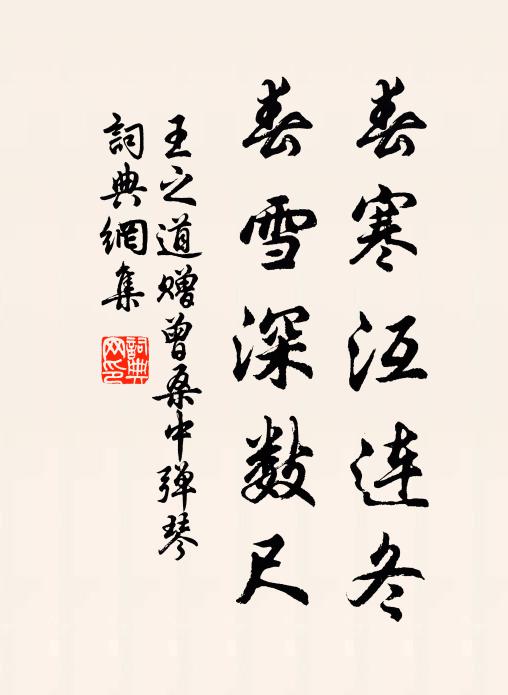 春寒沍连冬
春雪深数尺
王之道赠曾桑中弹琴
詞典網集
詞典网印